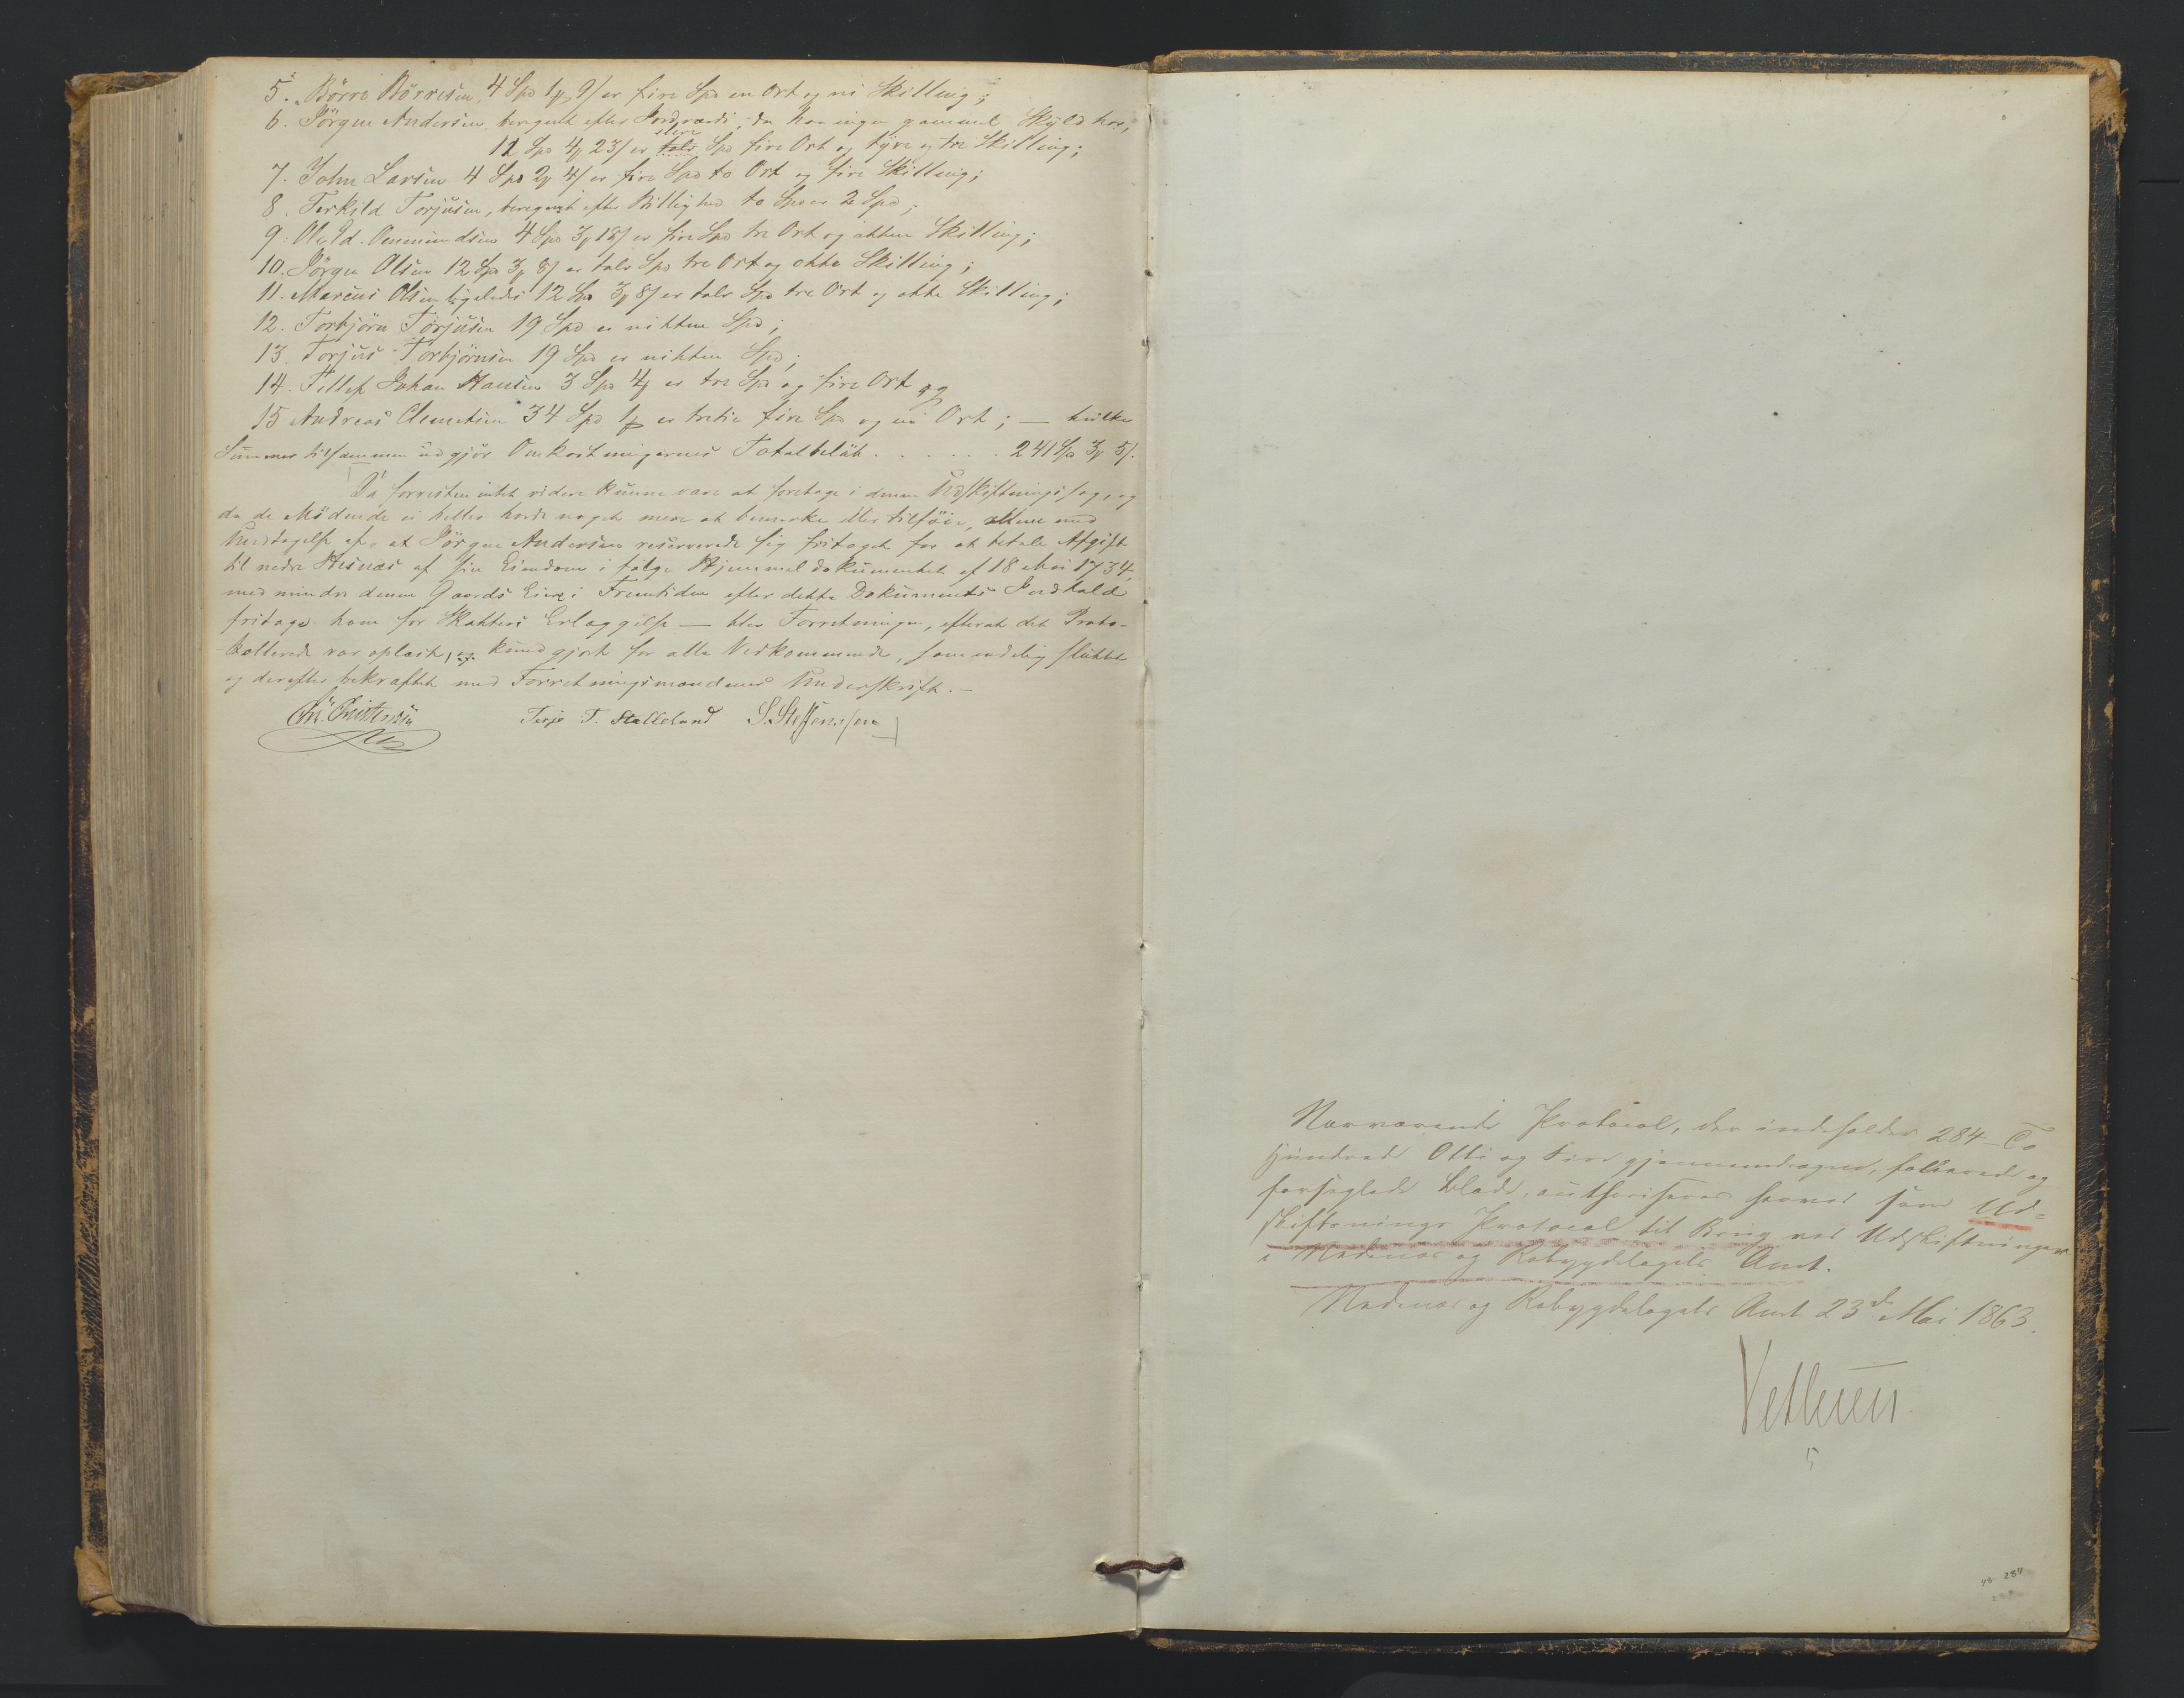 5. Börre Börresen, 4 Spd 1 ƒ 9 ʃ er fire Spd en Ort og ni Skilling;
6. Jörgen Andersen, beregnet efter Jordværdi, da han ingen gammel Skyld har,
elleve
12 Spd 4 ƒ 23 ʃ er tolv Spd fire Ort og tyve og tre Skilling;
7. John Larsen 4 Spd 2 ƒ 4 ʃ er fire Spd to Ort og fire Skilling;
8. Terkild Torjusen, beregnet efter Billighed to Spd er 2 Spd;
9. Ole Ed. Ommundsen 4 Spd 3 ƒ 18 ʃ er fire Spd tre Ort og atten Skilling;
10. Jörgen Olsen 12 Spd 3 ƒ 8 ʃ er tolv Spd tre Ort og otte Skilling;
11. Marcus Olsen ligeledes 12 Spd 3 ƒ 8 ʃ er tolv Spd tre Ort og otte Skilling;
12. Torbjörn Torjusen 19 Spd er nitten Spd;
13. Torjus Torbjörnsen 19 Spd er nitten Spd;
14. Tellef Johan Hansen 3 Spd 4 ƒ er tre Spd og fire Ort og
15 Andreas Clemetsen 34 Spd 1 ƒ er tretie fire Spd og en Ort; — hvilke
Summer tilsammen udgjör Omkostningernes Totalbelöb . . . . . . 241 Spd 3 ƒ 5 ʃ.
Da forresten intet videre kunne være at foretage i denne Udskiftningssag, og
da de Mödende ei heller havde noget mere at bemærke eller tilföie, alene med
Undtagelse af, at Jörgen Andersen reserverede sig fritaget for at betale Afgift
til nedre Hesnæs af sin Eiendom i fölge Hjemmeldokumentet af 18 Mai 1734,
med mindre denne Gaards Eiere i Fremtiden efter dette Dokuments Indhold
fritage ham for Skatters Erlæggelse — blev Forretningen, efterat det Proto-
-kollerede var oplæst, og kundgjort for alle Vedkommende, som endelig sluttet
og derefter bekræftet med Forretningsmændenes Underskrift. —
Chr. Christensen Terje T. Stalleland S. Steffensen
Nærværende Protocol, der indeholder 284 – To
Hundrede Otti og Fire gjennemdragne, folierede og
forseglede Blade, authoriseres herved som Ud=
skiftnings Protocol til Brug ved Udskiftninger
i Nedenæs og Robygdelagets Amt.
Nedenæs og Robygdelagets Amt 23d Mai 1863.
Vetlesen
284